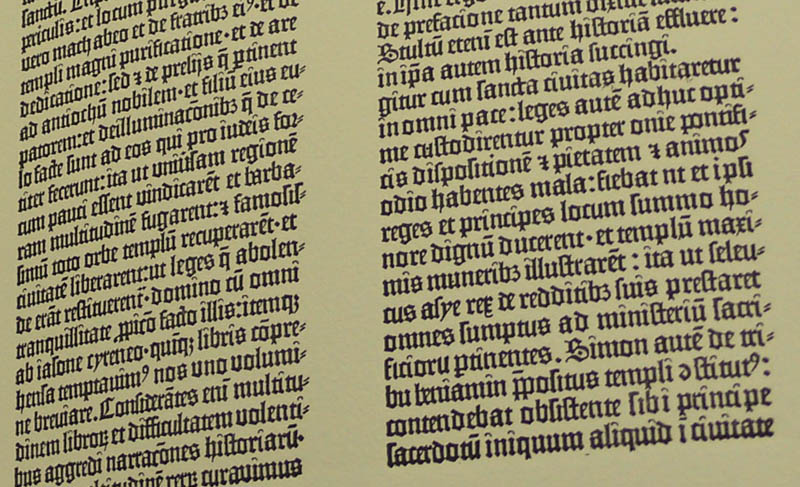 priculis: et locum
vero machabeo et de fratribꝫ ei⁹· et de
templi magni purificatione· et de are
dedicatione: sed ⁊ de prelijs q̃ ꝑtinent
ad antiochũ nobilem· et filiũ eius eu⸗
patorem: et de illuminacõnibꝫ q̃ de ce⸗
lo facte sunt ad eos qui pro iudeis for⸗
titer fecerunt: ita ut uniũsam regionẽ
cum pauci essent vindicarẽt et barba⸗
ram multitudinẽ fugarent: ⁊ famosis⸗
simũ toto orbe templũ recuperarẽt· et
ciuitatẽ liberarent: ut leges q̃ abolen⸗
de erãt restituerent· domino cũ omni
tranquillitate ꝓpicõ facto illis: itemqꝫ
ab iasone cyreneo· quĩqꝫ libris cõpre⸗
hensa temptauim⁹ nos uno volumi⸗
ne breuiare. Considerãtes eni multitu⸗
dinem libroꝝ et difficultatem volenti⸗
bus aggredi narracõnes historiarũ·
rerꝝ curauimus
de prefacione tantum dixisse
Stultũ eteni est ante historiã effluere:
in ip̃a autem historia succingi.
gitur cum sancta ciuitas habitaretur
in omni pace: leges autẽ adhuc opti⸗
me custodirentur propter onie pontifi⸗
cis dispositionẽ ⁊ pietatem ⁊ animos
odio habentes mala: fiebat ut et ipsi
reges et principes locum summo ho⸗
nore dignũ ducerent· et templũ maxi⸗
mis muneribꝫ illustrarẽt: ita ut seleu⸗
cus asye rex de redditibꝫ suis prestaret
omnes sumptus ad ministeriũ sacri⸗
ficioru ꝑtinentes. Simon autẽ de tri⸗
bu beniamin p̃positus templi ↄstitut⁹:
contendebat obsistente sibi principe
sacerdotũ iniquum aliquid ĩ ciuitate